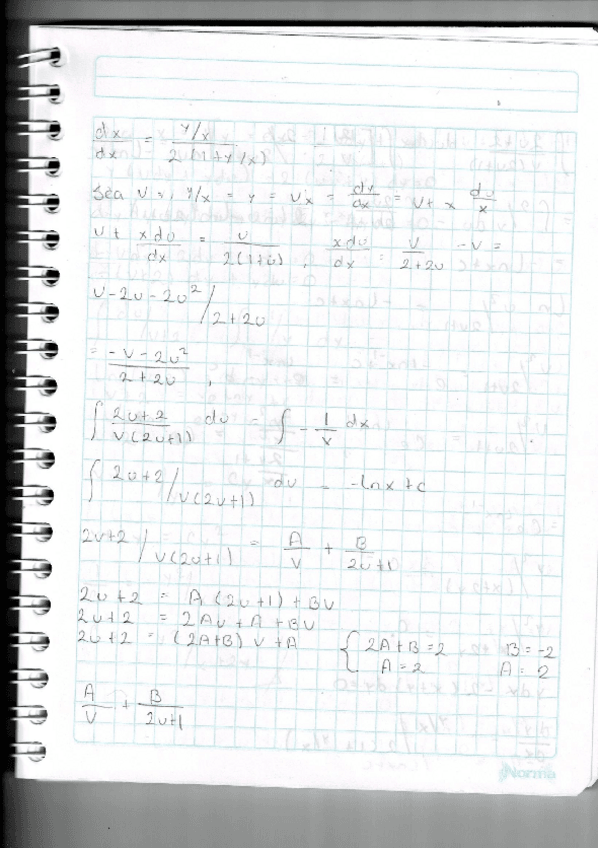 dx/dx = y/x / 2(1+y/x)
Sea v = y/x = y = vx = dy/dx = v + x dv/x
v + xdv/dx = v / 2(1+v) , xdv/dx = v / 2+2v - v =
v-2v-2v² / 2+2v
= -v-2v² / 2+2v ,
∫ 2v+2 / v(2v+1) dv = ∫ - 1/x dx
∫ 2v+2 / v(2v+1) dv = -lnx+c
2v+2 / v(2v+1) = A/v + B/2v+1
2v+2 = A(2v+1)+Bv
2v+2 = 2Av+A+Bv
2v+2 = (2A+B)v+A { 2A+B=2 B=-2
A=2 A=2
A/v + B/2v+1
Norma